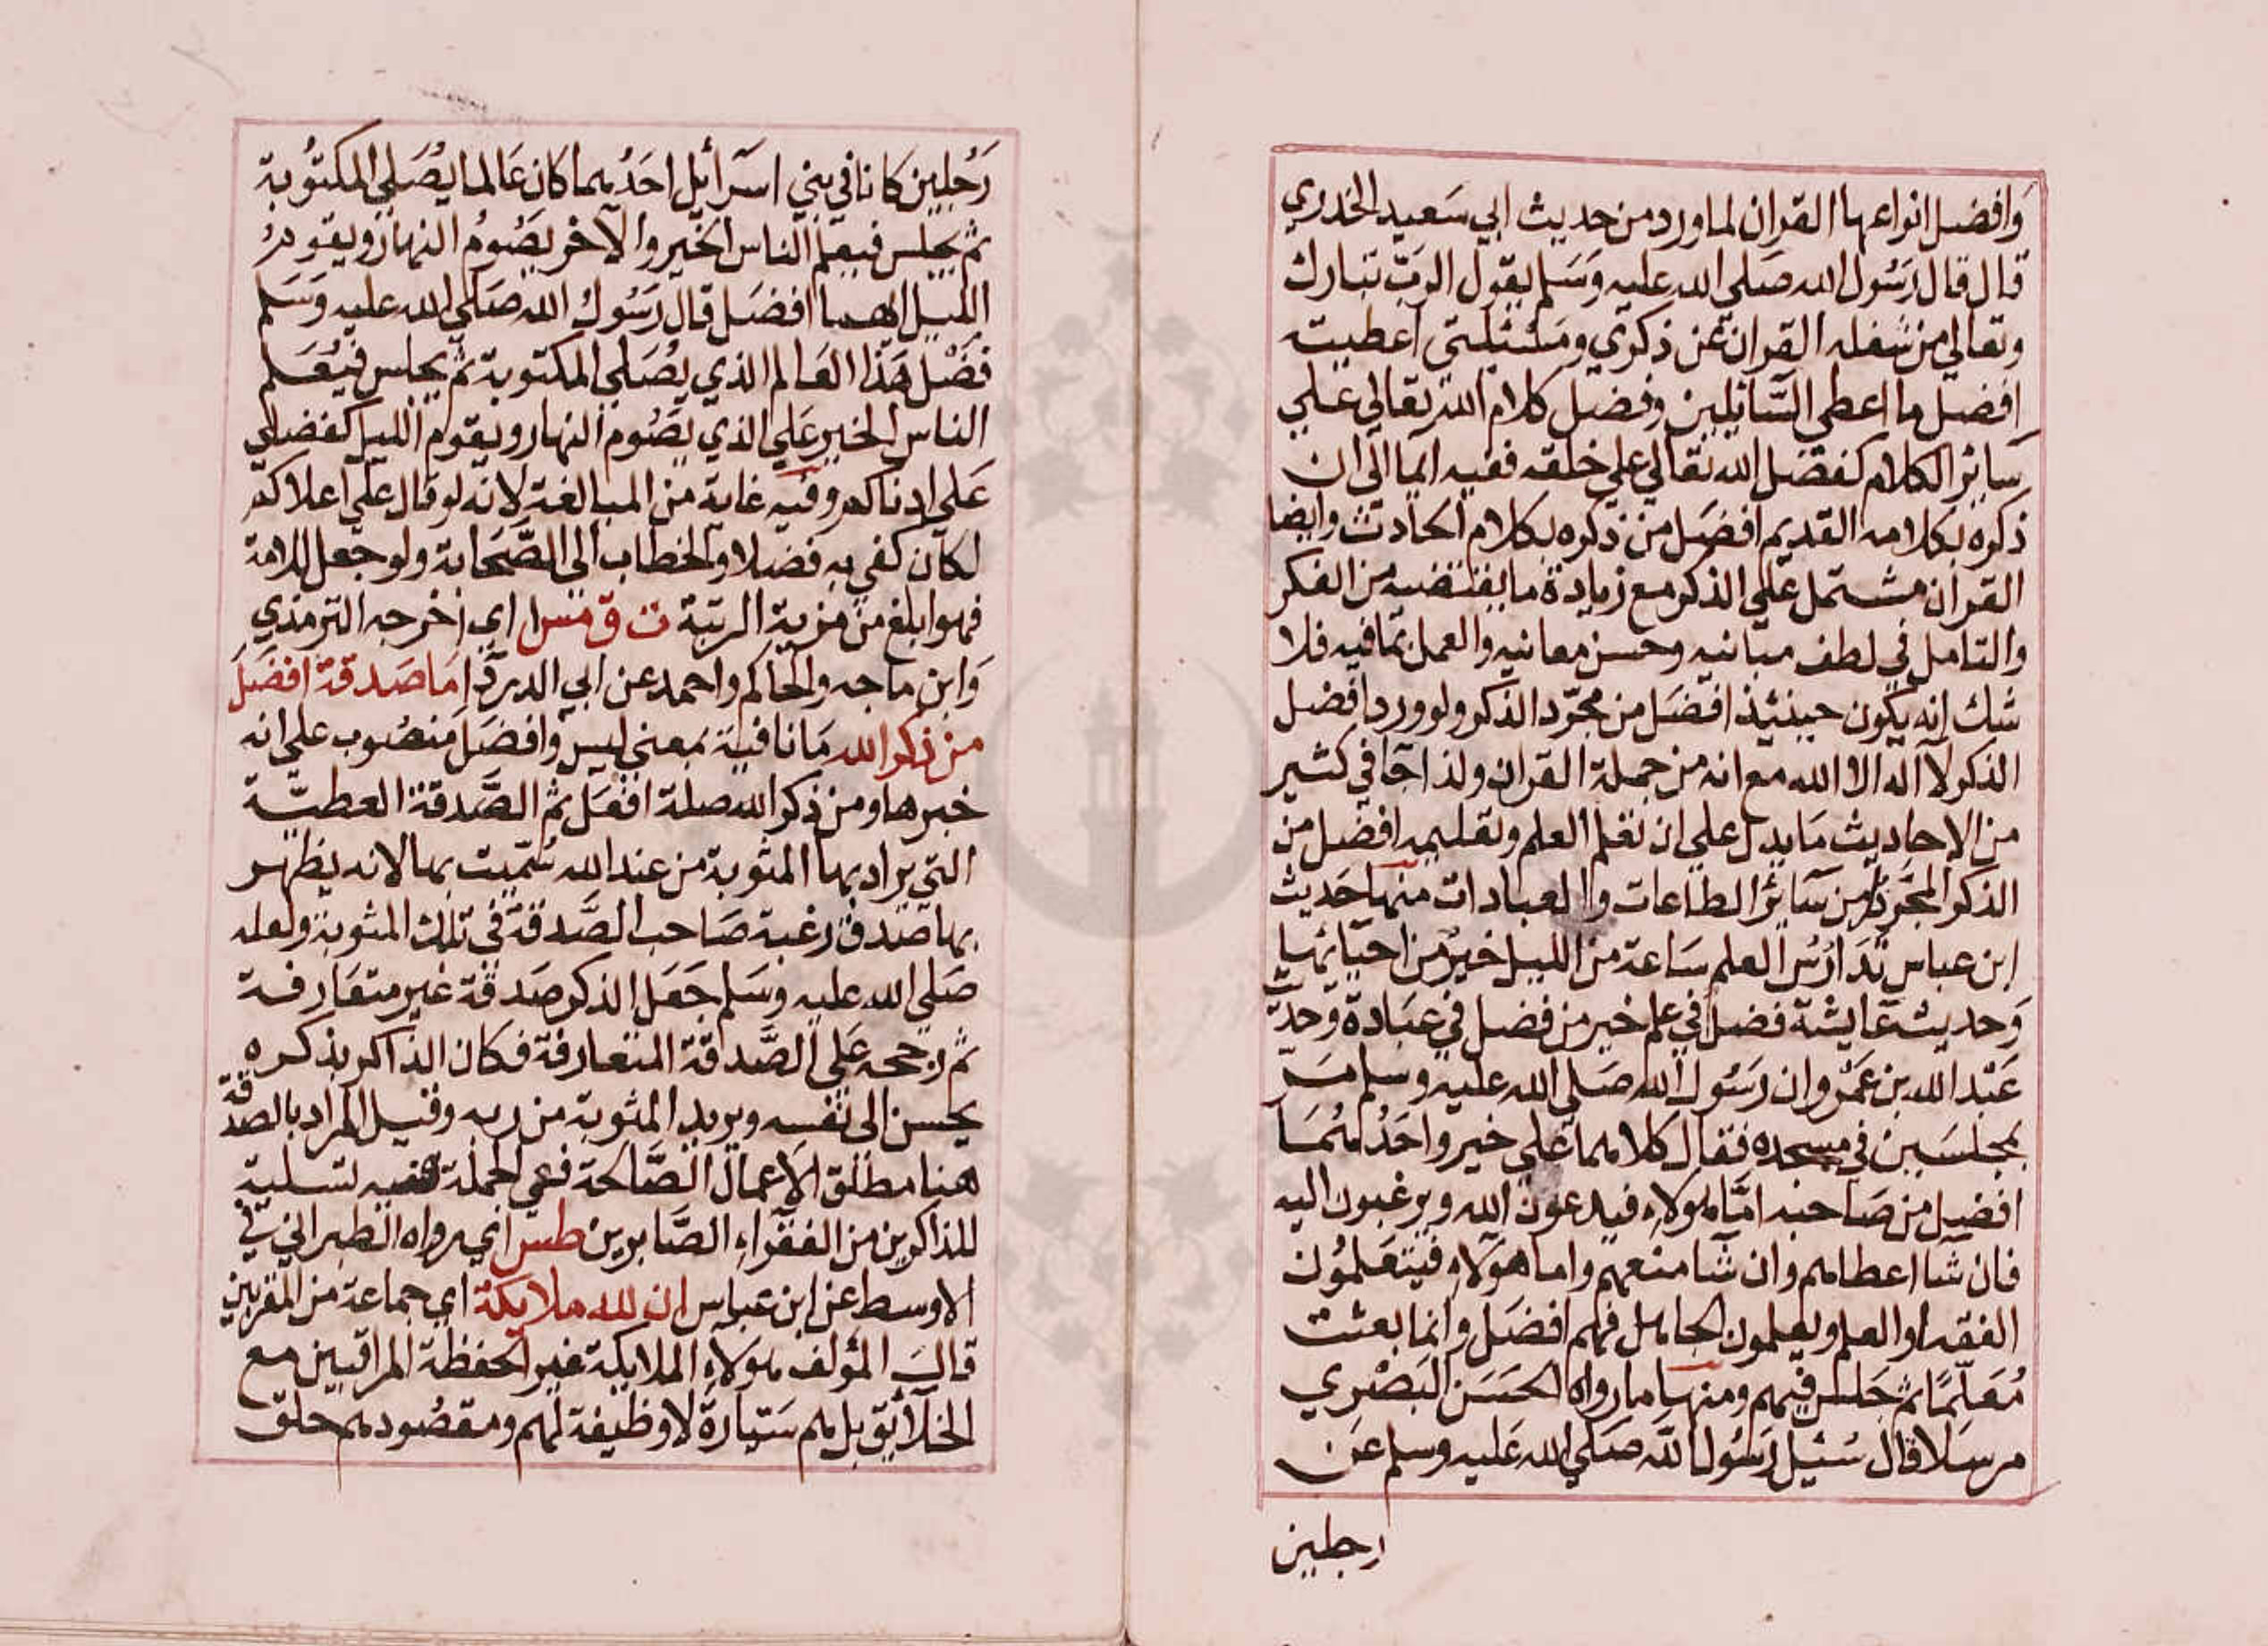 وافضل انواعها القران لما ورد من حديث ابي سَعيد الخدري
قال قال رَسُول الله صَلي الله عليه وَسَلم يقول الربّ تبارك
وتعالي من شغله القران عن ذكري ومَسْئلتي اعطيته
افضل ما اعطي السَّائلين وفضل كلام الله تعالي علي
سَائر الكلام كفضل الله تعالي علي خلقه ففيه ايما الى ان
ذكره بكلامه القديم افضَل من ذكره بكلام الحادث وايضا
القران مشتمل علي الذكر مع زيادة ما يقتضيه من الفكر
والتامل في لطف مبانيه وحسن معانيه والعمل بما فيه فلا
شك انه يكون حينئذ افضَل من مجرّد الذكر ولو ورد افضل
الذكر لا اله الا الله مع انه من جملة القران ولذا جآ في كثير
من الاحاديث مَا يدل علي ان تعلم العلم وتعليمه افضل من
الذكر المجَرد ومن سَائر الطاعات والعبادات منها حَديث
ابن عباس تَدَارُسُ العلم سَاعة من الليل خيرٌ من احيَائها
وَحديث عَايشة فضل في علم خير من فضل في عبَادة وَحديث
عَبْد الله بن عَمْرو ان رَسُول الله صَلي الله عليه وسلم مَرّ
بمجلسَين في مسجده فقال كلاهما عَلي خير واحَدُهُمَا
افضل من صَاحبه امَّا هولاء فيدعون الله ويرغبون اليه
فان شَا اعطاهم وان شَا منعهم واما هولآء فيتعَلمُون
الفقه او العلم ويعلمون الجاهل فهم افضَل وانما بعثت
مُعَلّمًا ثم جَلس فيهم ومنها ما رواه الحسَن البَصْري
مرسَلا قال سُئيل رَسُول الله صَلي الله عَليه وسلم عَن
رجلين
رَجُلين كانا في بني اسرآئيل احَدُهما كان عَالما يُصَلي المكتُوبة
ثم يجلس فيعلم الناس الخير والآخر يَصُومُ النهارَ ويقوم
الليل ايهما افضَل قال رَسُول الله صَلي الله عليه وَسَلم
فضْل هَذا العَالم الذي يُصَلي المكتوبة ثم يجلس فيُعَلم
الناس الخير عَلي الذي يَصُوم النهار ويقوم الليل كفضلي
عَلي ادناكم وفيه غاية من المبالغة لانه لو قال علي اعلاكم
لكان كفي به فضلا والخطاب الى الصَّحَابة ولو جعل للامة
فهو ابلغ من مزية الرتبة ت ق مس ا اي اخرجه الترمذي
وَابن ماجه والحاكم واحمد عن ابي الدردآ مَا صَدقة افضَل
من ذكر الله مَا نافية بمَعني ليس وافضَل مَنصُوب علي انه
خبرها ومن ذكر الله صلة افعَل ثم الصَّدقة العطيّة
التي يراد بها المثوبة من عند الله سُمّيت بها لانه يظهر
بها صدق رغبة صَاحب الصَّدقة في تلك المثوبة ولعله
صَلي الله عليه وسَلم جَعَل الذكر صَدقة غير متعَارفة
ثم رجحه عَلي الصَّدقة المتعارفة فكان الذاكر بذكره
يحسن الى نفسه ويريد المثوبة من ربه وقيل المراد بالصدقة
هنا مطلق الاَعمال الصَّالحة ففي الجملة ففيه تسلية
للذاكرين من الفقرآء الصَّابرين طس اي رواه الطبراني في
الاوسط عن ابن عباس ان لله ملايكة اي جماعة من المقربين
قال المؤلف هولاء الملايكة غير الحفظة المراقبين مع
الخلآئق بل هم سَيّارة لا وظيفة لهم ومقصُودهم حلق